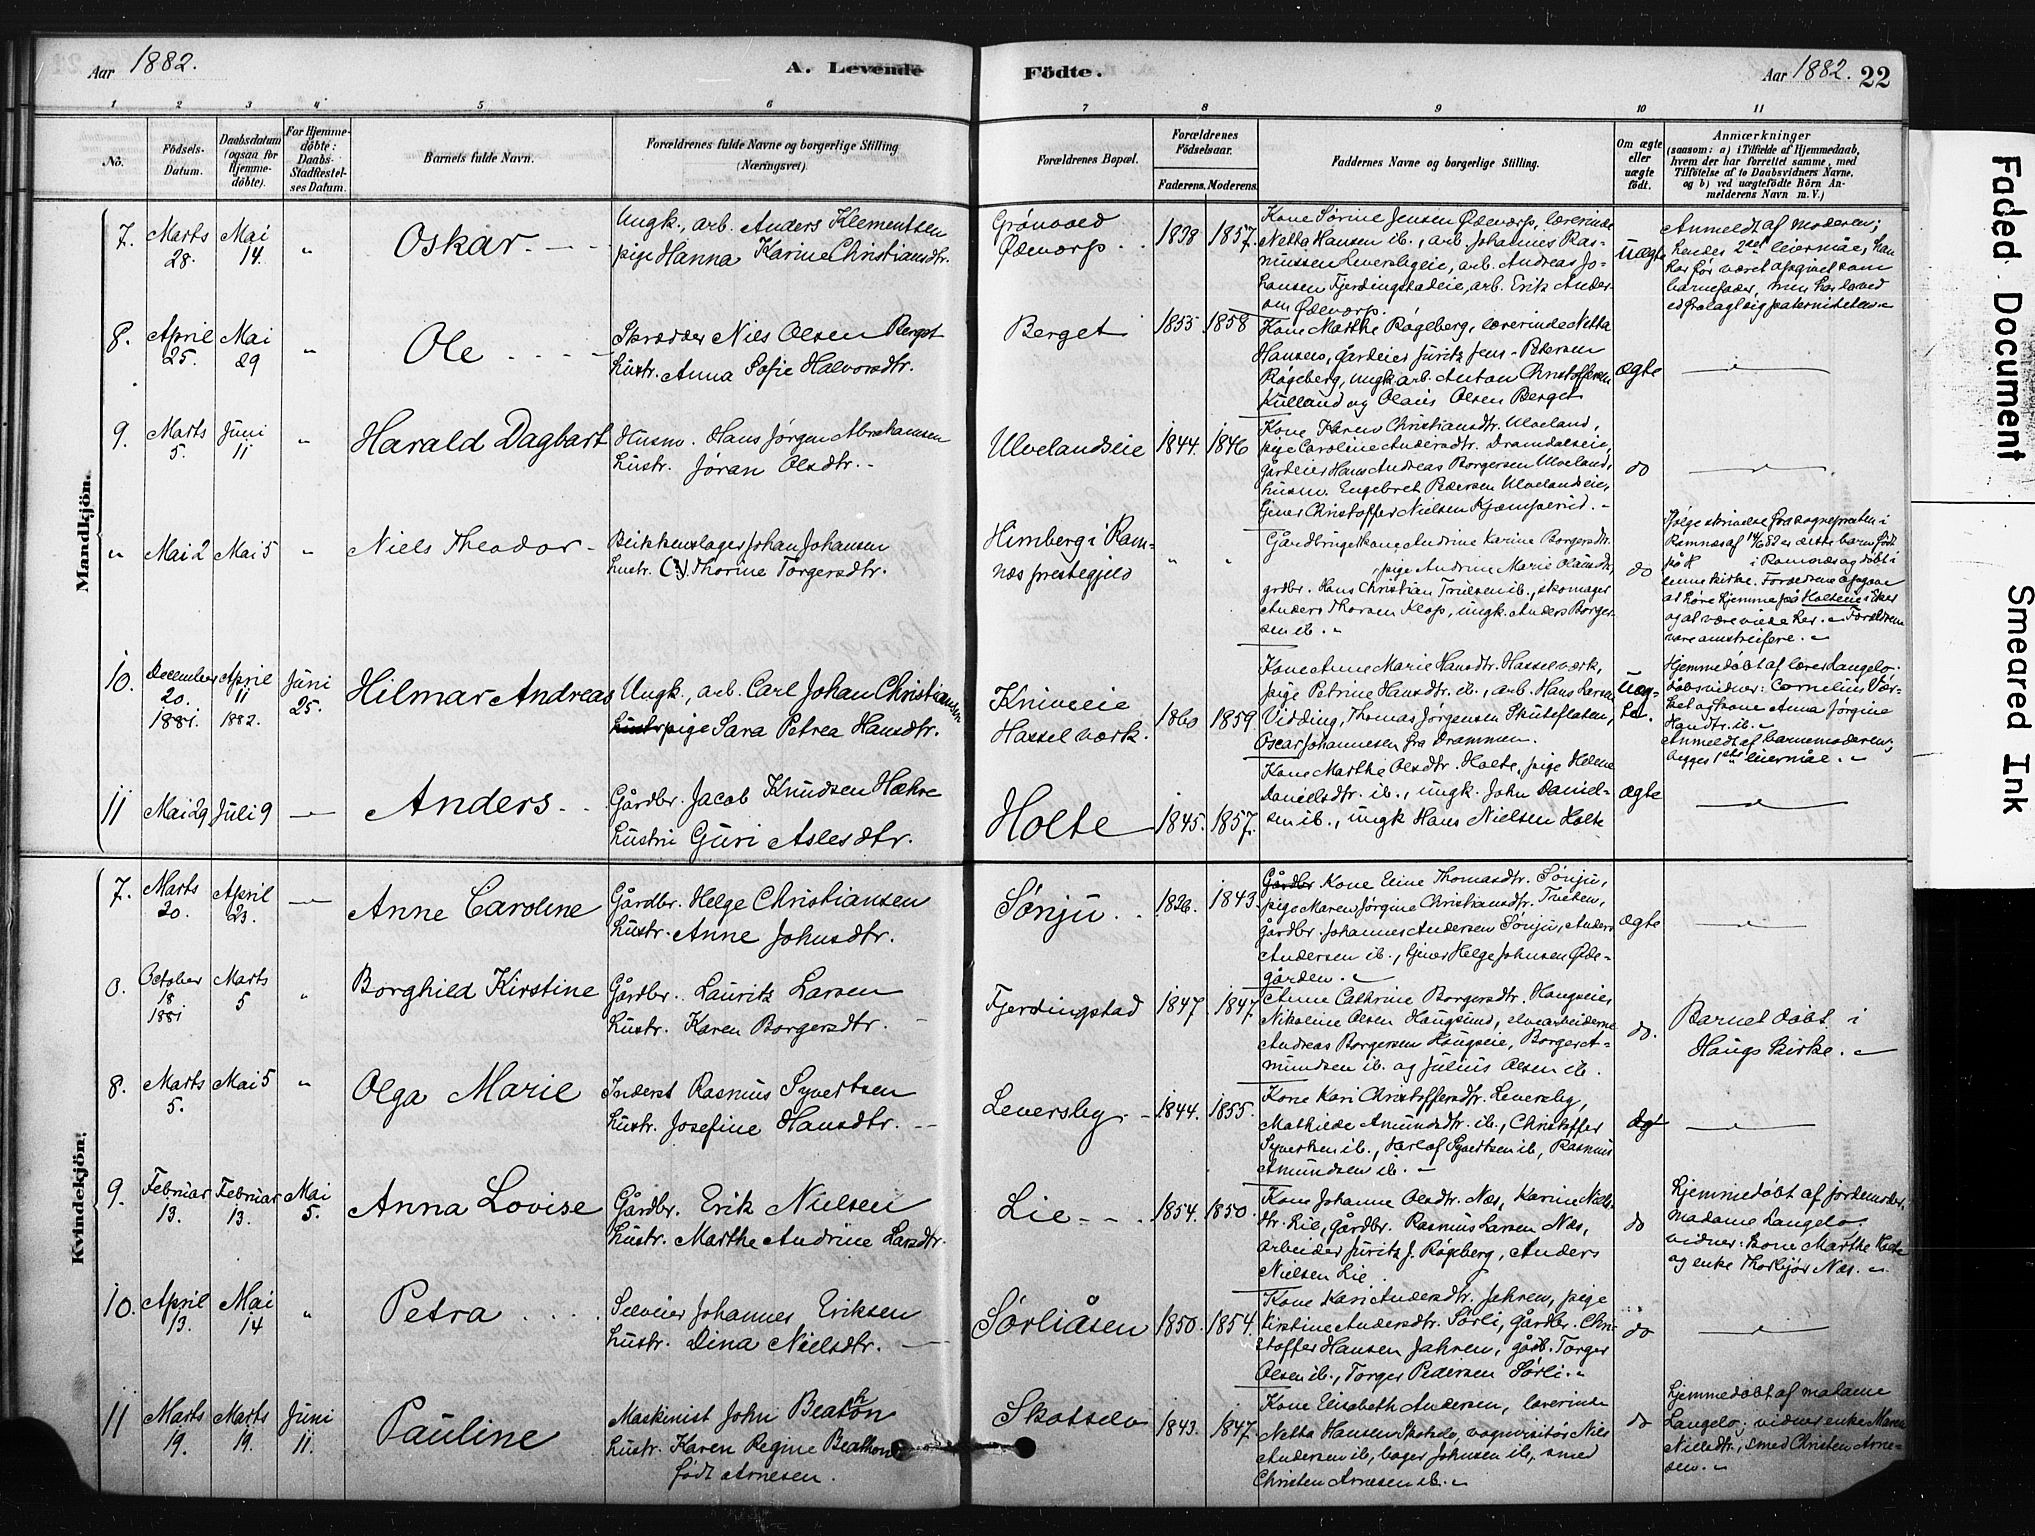 Aar 1882.
A. Levende Födte.
Aar 1882. 22
1 2 3 4 5 6 7 8 9 10 11
No.
Födsels-Datum.
Daabsdatum (ogsaa for Hjemmedöbte).
For Hjemmedöbte: Daabs-Stadfæstelses Datum.
Barnets fulde Navn.
Forældrenes fulde Navne og borgerlige Stilling (Næringsvei).
Forældrenes Bopæl.
Forældrenes Födselsaar.
Faderens. Moderens.
Faddernes Navne og borgerlige Stilling.
Om ægte eller uægte födt.
Anmærkninger
(saasom: a) i Tilfælde af Hjemmedaab,
hvem der har forrettet samme, med
Tilföielse af to Daabsvidners Navne,
og b) ved uægtefödte Börn Anmelderens Navn m. V.)
Mandkjön.
7. Marts 28. Mai 14. " Oskar.
Ungk., arb. Anders Klementsen
pige Hanna Karine Christiansdtr.
Grønvold
Ødevorp
1838 1857.
Kone Sørine Jensen Ødevorp, lærerinde
Netta Hansen ib., arb. Johannes Ras-
mussen Leversbyeie, arb. Andreas Jo-
hansen Fjerdingstadeie, arb. Erik Anders-
en Ødevorp.
uægte
Anmeldt af moderen;
hendes 2det leiermåe, han
har før været opgivet som
barnefader, men har ved
ed fralagt sig paterniteten.
8. April 25. Mai 29 " Ole
Skrædder Niels Olsen Berget
hustr. Anna Sofie Halvorsdtr.
Berget
1855 1858
Kone Marthe Røgeberg, lærerinde Netta
Hansen, gårdeier Juritz Jens-Petersen
Røgeberg, ungk. arb. Anton Christoffersen
Kulland og Olaus Olsen Berget
ægte
9. Marts 5. Juni 11 " Harald Dagbart
Husm. Hans Jørgen Abrahamsen
hustr. Jøran Olsdtr.
Ulvelandseie
1844. 1846
Kone Karen Christiansdtr. Ulveland,
pige Caroline Andersdtr. Dramdalseie,
gårdeier Hans Andreas Borgersen Ulveland,
husm. Engebret Pedersen Ulvelandseie,
tjener Christoffer Nielsen Kjæmperud.
do
" Mai 2 Mai 5 " Niels Theodor
Blikkenslager Johan Johansen
hustr. (?) Thorine Torgersdtr.
Himberg i Ram-
næs prestegjeld
" "
Gårdbrugerkone Andrine Karine Borgersdtr.
pige Andrine Marie Olausdtr.
grdbr. Hans Christian Trulsen ib., skomager
Anders Thorsen Klop, ungk. Anders Borger-
sen ib.
do
Ifølge skrivelse fra sognepresten i
Ramnæs af 14/6 82 er dette barn født
på H i Ramnæs og døbt i
denne kirke. Forældrene opgave
at høre hjemme på Holteeie i Eker
og at være viede her. Forældrene
vare omstreifere.
10. December 20. 1881. April 11 1882. Juni 25. Hilmar Andreas
Ungk., arb. Carl Johan Christiansen
hustr pige Sara Petrea Hansdtr.
Kniveeie
Hassel værk.
1860 1859
Kone Anne Marie Hansdtr. Hasselværk,
pige Petrine Hansdtr. ib., arb. Hans Larsen
Vidding, Thomas Jørgensen Skuteflaten,
Oscar Johannesen fra Drammen.
uæg-
te.
Hjemmedøbt af lærer Langelo.
Dåbsvidner: Cornelius Vær-
ket og kone Anna Jørgine
Hansdtr. ib.
Anmeldt af barnemoderen;
begges 1ste leiermåe.
11 Mai 29 Juli 9 Anders
Gårdbr. Jacob Knudsen Hæhre
hustru Guri Aslesdtr.
Holte
1845. 1857.
Kone Marthe Olsdtr. Holte, pige Helene
Danielsdtr. ib., ungk. John Daniel-
sen ib., ungk Hans Nielsen Holte
ægte
Kvindekjön.
7. Marts 20. April 23. Anne Caroline
Gårdbr. Helge Christiansen
hustr. Anne Johnsdtr.
Sønju
1826. 1843.
Gårdbr Kone Eline Thomasdtr. Sønju,
pige Maren Jørgine Christiansdtr. Tveten,
gårdbr. Johannes Andersen Sønju, Anders
Andersen ib., tjener Helge Johnsen Øde-
gården.
ægte
0. October 18 1881 Marts 5 " Borghild Kirstine
Gårdbr. Lauritz Larsen
hustr. Karen Borgersdtr.
Fjerdingstad
1847 1847
Anne Cathrine Borgersdtr. Hougseie,
Nikoline Olsen Hougsund, elvearbeiderne
Andreas Borgersen Hougseie, Borger A-
mundsen ib. og Julius Olsen ib.
do.
Barnet døbt i
Hougs kirke.
8. Marts 5. Mai 5 " Olga Marie
Inderst Rasmus Syvertsen
hustr. Josefine Hansdtr.
Leversby
1844. 1855.
Kone Kari Christoffersdtr. Leversby,
Mathilde Amundsdtr. ib., Christoffer
Syvertsen ib., Karl af Syvertsen ib, Rasmus
Amundsen ib.
Ægt
9. Februar 13. Februar 13. Mai 5. Anna Lovise
Gårdbr. Erik Nielsen
hustr. Marthe Andrine Larsdtr.
Lie
1854. 1850.
Kone Johanne Olsdtr. Næs, Karine Niels-
dtr. Lie, gårdbr. Rasmus Larsen Næs,
arbeider Juritz J. Røgeberg, Anders
Nielsen Lie.
do
hjemmedøbt af jordemoder
madame Langelo.
vidner: kone Marthe Holte
og enke Thorbjør Næs.
10. April 13. Mai 14 " Petra
Selveier Johannes Eriksen
hustr. Dina Nielsdtr.
Sørliåsen
1850. 1854.
Kone Kari Andersdtr. Jahren, pige
Kirstine Andersdtr. Sørli, gårdbr. Chri-
stoffer Hansen Jahren, gårdb. Torger
Olsen ib., Torger Pedersen Sørli.
do
11 Marts 19. Marts 19. Juni 11. Pauline
Maskinist John Beathon
hustr. Karen Regine Beathon
født Arnesen.
Skotselv
1843. 1847.
Kone Elisabeth Andersen, lærerinde
Netta Hansen Skotselv, vognvisitør Niels
Andersen ib, bager Johnsen ib, smed
Christen Arnesen ib.
do
hjemmedøbt af madame
Langelo; vidner enke Maren
Nielsdtr., smed Christen Arne-
sen.
Faded Document
Smeared Ink